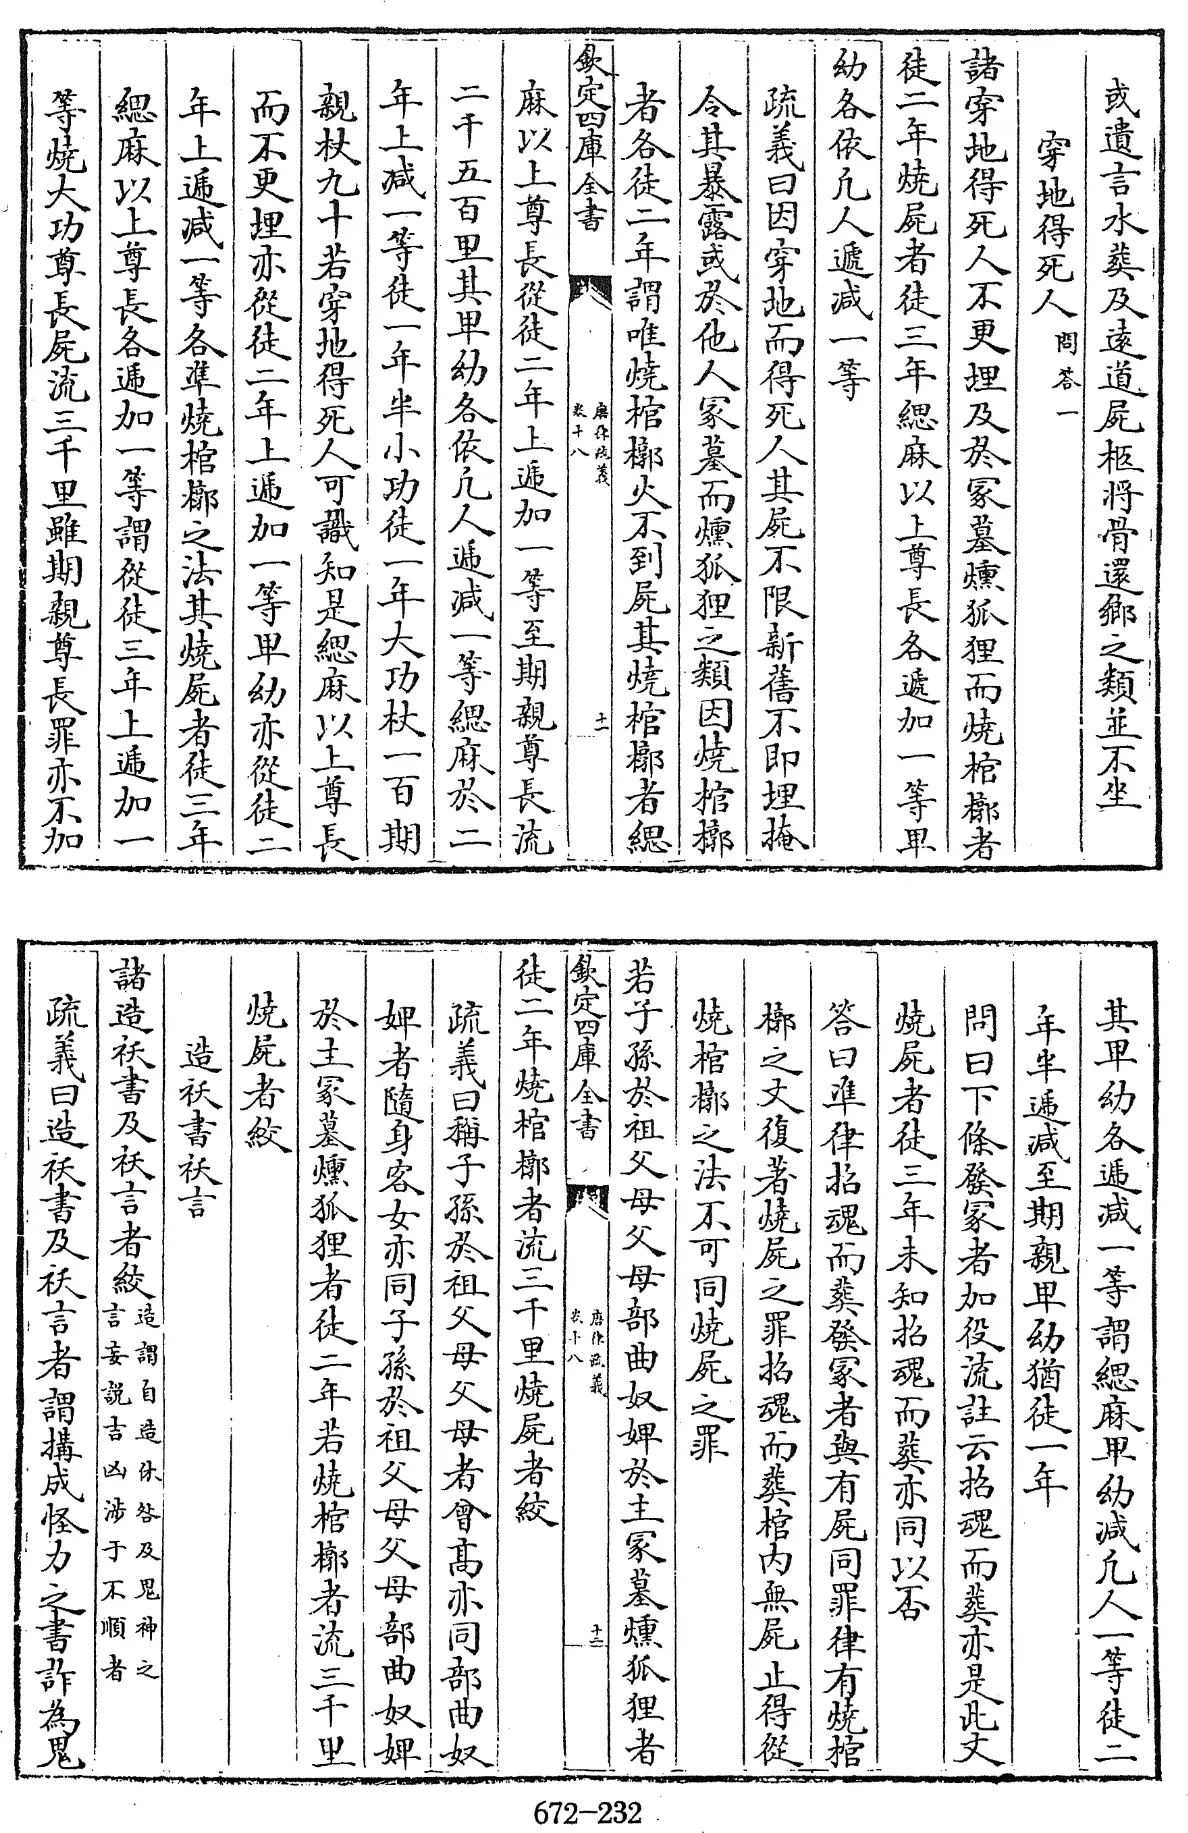 或遺言水葬及遠道屍柩將骨還鄉之類並不坐
穿地得死人問答一
諸穿地得死人不更埋及於冢墓燻狐狸而燒棺槨者
徒二年燒屍者徒三年緦麻以上尊長各遞加一等卑
幼各依凡人遞減一等
疏義曰因穿地而得死人其屍不限新舊不即埋掩
令其暴露或於他人冢墓而燻狐狸之類因燒棺槨
者各徒二年謂唯燒棺槨火不到屍其燒棺槨者緦
欽定四庫全書
唐律疏義
卷十八
十一
麻以上尊長從徒二年上遞加一等至期親尊長流
二千五百里其卑幼各依凡人遞減一等緦麻於二
年上減一等徒一年半小功徒一年大功杖一百期
親杖九十若穿地得死人可識知是緦麻以上尊長
而不更埋亦從徒二年上遞加一等卑幼亦從徒二
年上遞減一等各準燒棺槨之法其燒屍者徒三年
緦麻以上尊長各遞加一等謂從徒三年上遞加一
等燒大功尊長屍流三千里雖期親尊長罪亦不加
其卑幼各遞減一等謂緦麻卑幼減凡人一等徒二
年半遞減至期親卑幼猶徒一年
問曰下條發冢者加役流註云招魂而葬亦是此文
燒屍者徒三年未知招魂而葬亦同以否
答曰準律招魂而葬發冢者與有屍同罪律有燒棺
槨之文復著燒屍之罪招魂而葬棺内無屍止得從
燒棺槨之法不可同燒屍之罪
若子孫於祖父母父母部曲奴婢於主冢墓燻狐狸者
欽定四庫全書
唐律疏義
卷十八
十二
徒二年燒棺槨者流三千里燒屍者絞
疏義曰稱子孫於祖父母父母者曾高亦同部曲奴
婢者隨身客女亦同子孫於祖父母父母部曲奴婢
於主冢墓燻狐狸者徒二年若燒棺槨者流三千里
燒屍者絞
造祅書祅言
諸造祅書及祅言者絞造謂自造休咎及鬼神之
言妄説吉凶涉于不順者
疏義曰造祅書及祅言者謂搆成怪力之書詐為鬼
672-232